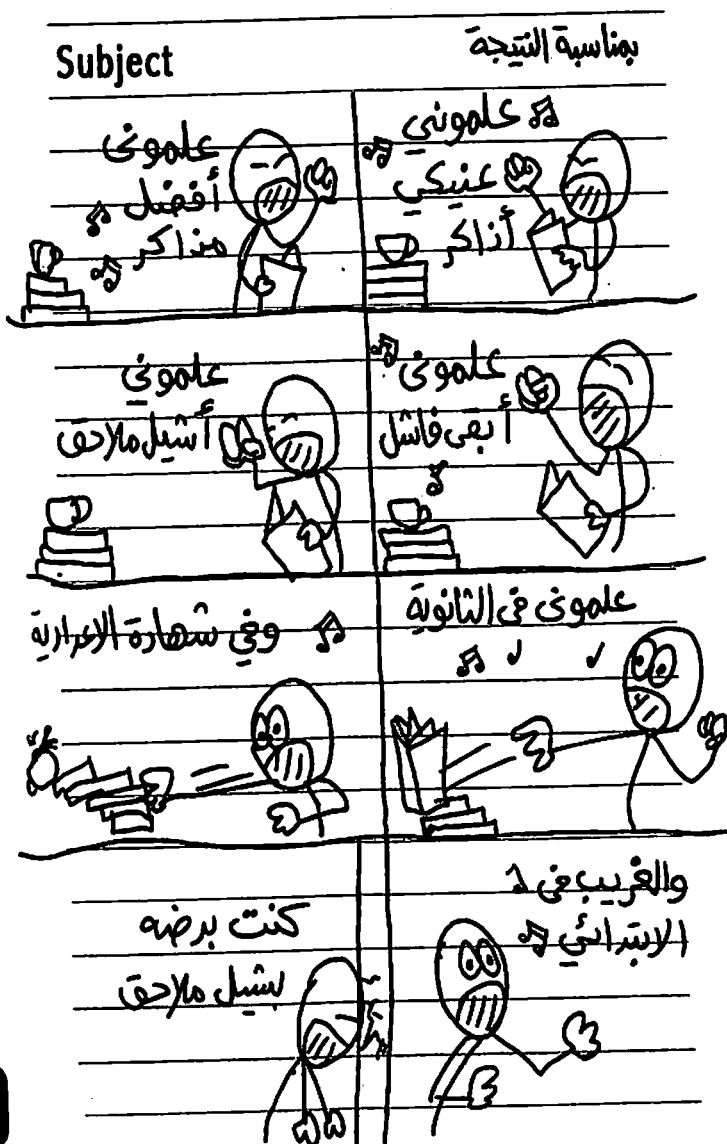 Subject
بمناسبة النتيجة
علمونى
عنيكي
أذاكر
علمونى
أفضل
مذاكر
علمونى
أبقى فاشل
علموني
أشيل ملاحق
علمونى فى الثانوية
وفي شهادة الاعدادية
والغريب فى
الابتدائي
كنت برضه
بشيل ملاحق